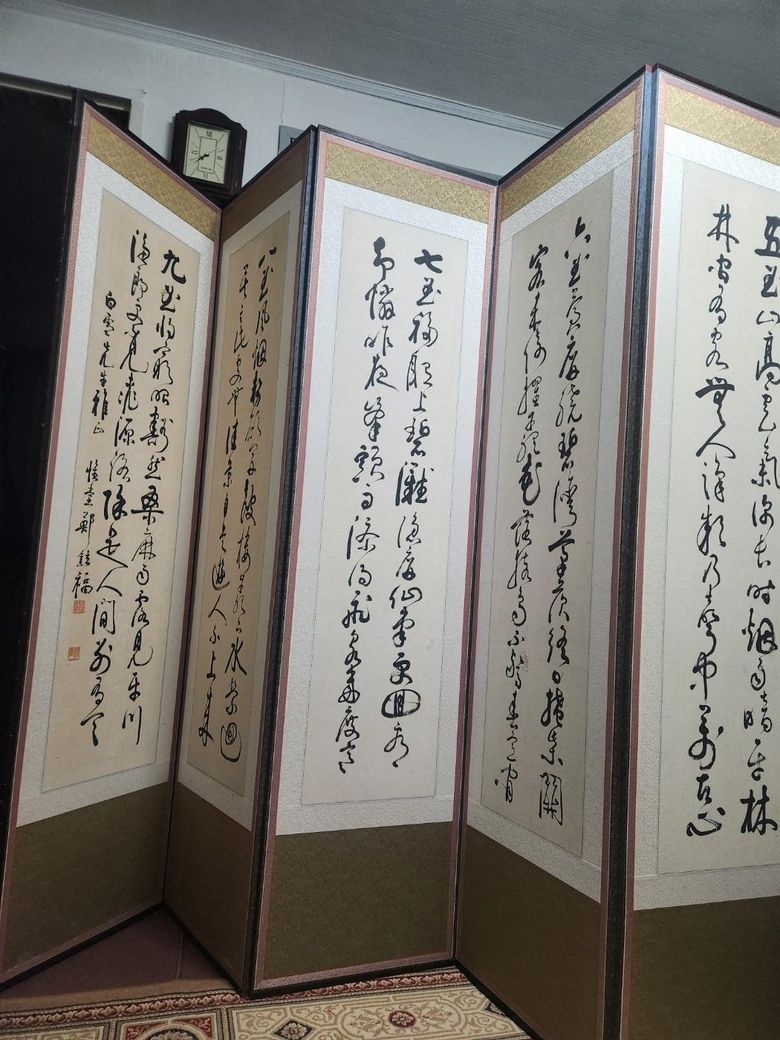 五曲山高雲氣深長時烟雨暗平林
林間有客無人識欸乃聲中萬古心
六曲蒼屏繞碧灣茅茨終日掩柴關
客來倚櫂巖花落猿鳥不驚春意閒
七曲移船上碧灘隱屏仙掌更回看
却憐昨夜峯頭雨添得飛泉幾度寒
八曲風烟勢欲開鼓樓巖下水縈洄
莫言此處無佳景自是遊人不上來
九曲將窮眼豁然桑麻雨露見平川
漁郎更覓桃源路除是人間別有天
白雲先生雅正 堂鄭 福